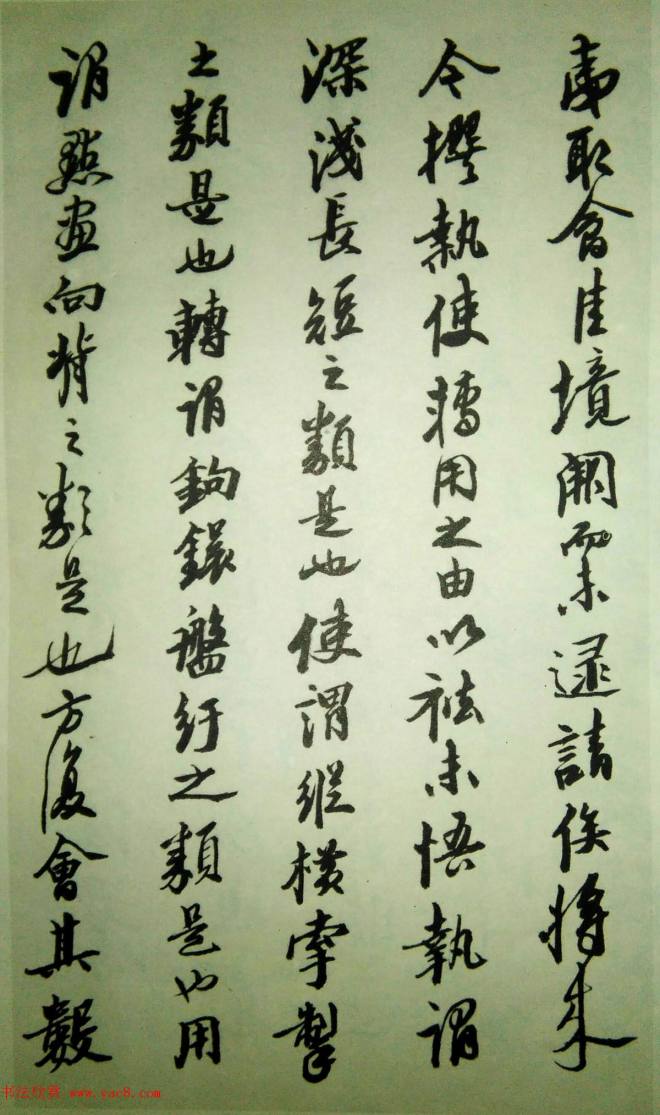 虚取會佳境闕而未逮請俟將来
今撰執使轉用之由以祛未悟執謂
深淺長短之類是也使謂縱横牽掣
之類是也轉謂鉤鐶盤紆之類是也用
謂點畫向背之類是也方復會其數
书法欣赏 www.yac8.com